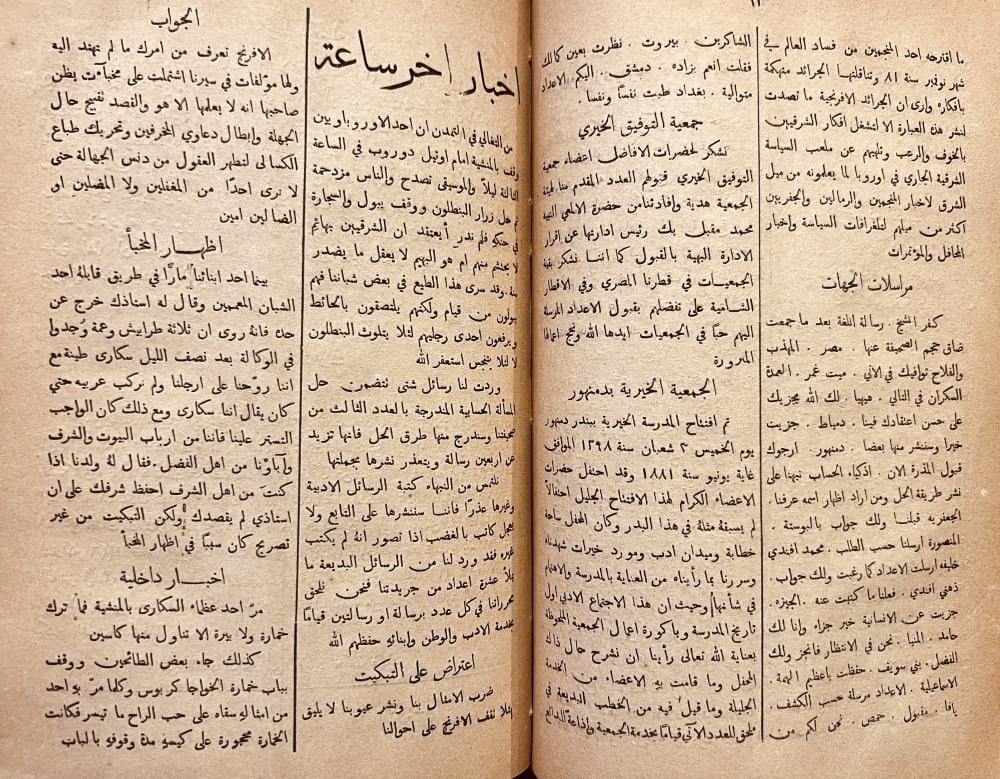 ١١
ما اقترحه احد المنجمين من فساد العالم في
شهر نوفمبر سنة ٨١ وتناقلتها الجرائد منهمكة
بافكاره وارى ان الجرائد الافرنجية ما تصدت
لنشر هذه العبارة الا لتشغل افكار الشرقيين
بالخوف والرعب وتلهيهم عن ملعب السياسة
الشرقية الجاري في اوروبا لما يعلمونه من ميل
الشرق لاخبار المنجمين والرمالين والجفريين
اكثر من ميلهم لتلغرافات السياسة واخبار
المحافل والمؤتمرات
مراسلات الجهات
كفر الشيخ . رسالة اللغة بعد ما جمعت
ضاق حجم الصحيفة عنها . مصر . المهذب
والفلاح توافيك في الاتي . ميت غمر . العمدة
السكران في التالي . ههيا . لك الله مجزيك
على حسن اعتقادك فينا . دمياط . جزيت
خيرا وسننشر منها بعضا . دمنهور . ارجوك
قبول المقدرة الان . اذكياء الحساب نبهنا على
نشر طريقة الحل ومن اراد اظهار اسمه عرفنا .
الجعفريه قبلنا ولك جواب بالبوستة .
المنصورة ارسلنا حسب الطلب . محمد افندي
خليفه ارسلت الاعداد كما رغبت ولك جواب .
ذهني افندي . فعلنا ما كتبت عنه . الجيزه .
جزيت عن الانسانية خير جزاء وانا لك
حامد . المنيا . نحن في الانتظار فانجز ولك
الفضل . بني سويف . حفظت باعظيم الهمة .
الاسماعيلية . الاعداد مرسلة حسب الكشف .
يافا . مقبول . حمص . نحن لكم من
الشاكرين . بيروت . نظرت بعين كالك
فقلت انعم بزاده . دمشق . اليكم الاعداد
متوالية . بغداد طبت نفسًا ونفسا .
جمعية التوفيق الخيري
نشكر لحضرات الافاضل اعضاء جمعية
التوفيق الخيري قبولهم العدد المقدم منا لهيئة
الجمعية هدية وافادتنا من حضرة الالمعي النبيه
محمد مقبل بك رئيس ادارتها عن اقرار
الادارة البهية بالقبول كما اننا نشكر بقية
الجمعيات في قطرنا المصري وفي الاقطار
الشامية على تفضلهم بقبول الاعداد المرسلة
اليهم حبا في الجمعيات ايدها الله ونجح اعمالها
المبرورة
الجمعية الخيرية بدمنهور
تم افتتاح المدرسة الخيرية ببندر دمنهور
يوم الخميس ٢ شعبان سنة ١٢٩٨ الموافق
غاية يونيو سنة ١٨٨١ وقد احتفل حضرات
الاعضاء الكرام لهذا الافتتاح الجليل احتفالاً
لم يسبقه مثله في هذا البدر وكان المحفل ساحة
خطابة وميدان ادب ومورد خيرات شهدناه
وسرنا بما رأيناه من العناية بالمدرسة والاهتمام
في شأنها وحيث ان هذا الاجتماع الادبي اول
تاريخ المدرسة وباكورة اعمال الجمعية المحفوظة
بعناية الله تعالى رأينا ان نشرح حال ذلك
المحفل وما قامت به الاعضاء من الخدمة
الجليلة وما قيل فيه من الخطب البديعة في
ملحق للعدد الآتي قيامًا بخدمة الجمعية واذاعة للبدائع
اخبار اخر ساعة
من التغالي في التمدن ان احد الاوروباويين
وقف بالمنشية امام اوتيل دوروب في الساعة
الثالثة ليلاً والموسيقى تصدح والناس مزدحمة
ثم حل زرار البنطلون ووقف يبول والسيجارة
في حنكه فلم ندر أيعتقد ان الشرقيين بهائم
لا يحتشم منهم ام هو البهيم لا يعقل ما يصدر
منه . وقد سرى هذا الطبع في بعض شباننا فهم
يبولون من قيام ولكنهم يلتصقون بالحائط
ويرفعون احدى رجليهم لئلا يتلوث البنطلون
لا لئلا يتنجس استغفر الله
وردت لنا رسائل شتى تتضمن حل
المسألة الحسابية المندرجة بالعدد الثالث من
صحيفتنا وسندرج منها طرق الحل فانها تزيد
عن اربعين رسالة ويتعذر نشرها بجملتها
نلتمس من النبهاء كتبة الرسائل الادبية
وغيرها عذرًا فاننا سننشرها على التابع ولا
يعجل كاتب بالغضب اذا تصور انه لم يكتب
غيره فقد ورد لنا من الرسائل البديعة ما
يملأ عشرة اعداد من جريدتنا فنحن نلحق
محرراتنا في كل عدد برسالة او رسالتين قيامًا
بخدمة الادب والوطن وابنائه حفظهم الله
اعتراض على التبكيت
ضرب الامثال بنا ونشر عيوبنا لا يليق
لئلا تقف الافرنج على احوالنا
الجواب
الافرنج تعرف من امرك ما لم تهتد اليه
ولها مؤلفات في سيرنا اشتملت على مخبآت يظن
صاحبها انه لا يعلمها الا هو والقصد تقبيح حال
الجهلة وابطال دعاوي المخرفين وتحريك طباع
الكمالى لتطهر العقول من دنس الجهالة حتى
لا نرى احدًا من المغفلين ولا المضلين او
الضالين امين
اظهار المخبأ
بينما احد ابنائنا مارًا في طريق قابلهُ احد
الشبان المعممين وقال له استاذك خرج عن
حده فانهُ روى ان ثلاثة طرابيش وعمة وُجدوا
في الوكالة بعد نصف الليل سكارى طينة مع
اننا روّحنا على ارجلنا ولم نركب عربيه حتي
كان يقال اننا سكارى ومع ذلك كان الواجب
التستر علينا فاننا من ارباب البيوت والشرف
وآباؤنا من اهل الفضل . فقال لهُ ولدنا اذا
كنت من اهل الشرف احفظ شرفك على ان
استاذي لم يقصدك ولكن التبكيت من غير
تصريح كان سببًا في اظهار المخبأ
اخبار داخلية
مرّ احد عظماء السكارى بالمنشية فما ترك
خمارة ولا بيرة الا تناول منها كاسين
كذلك جاء بعض الطائحين ووقف
بباب خمارة الخواجا كربوس وكلما مرّ به احد
من امثاله سقاه على حب الراح ما تيسر فكانت
الخمارة محجورة على كيسهِ مدة وقوفهِ بالباب